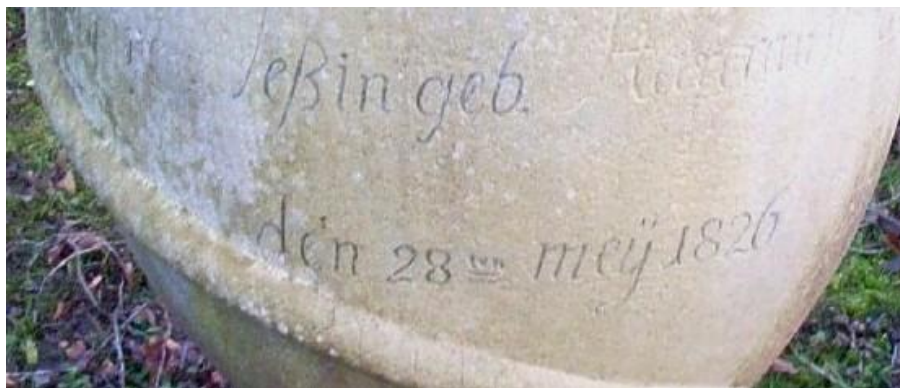 Jeßin geb.
den 28ten meÿ 1826